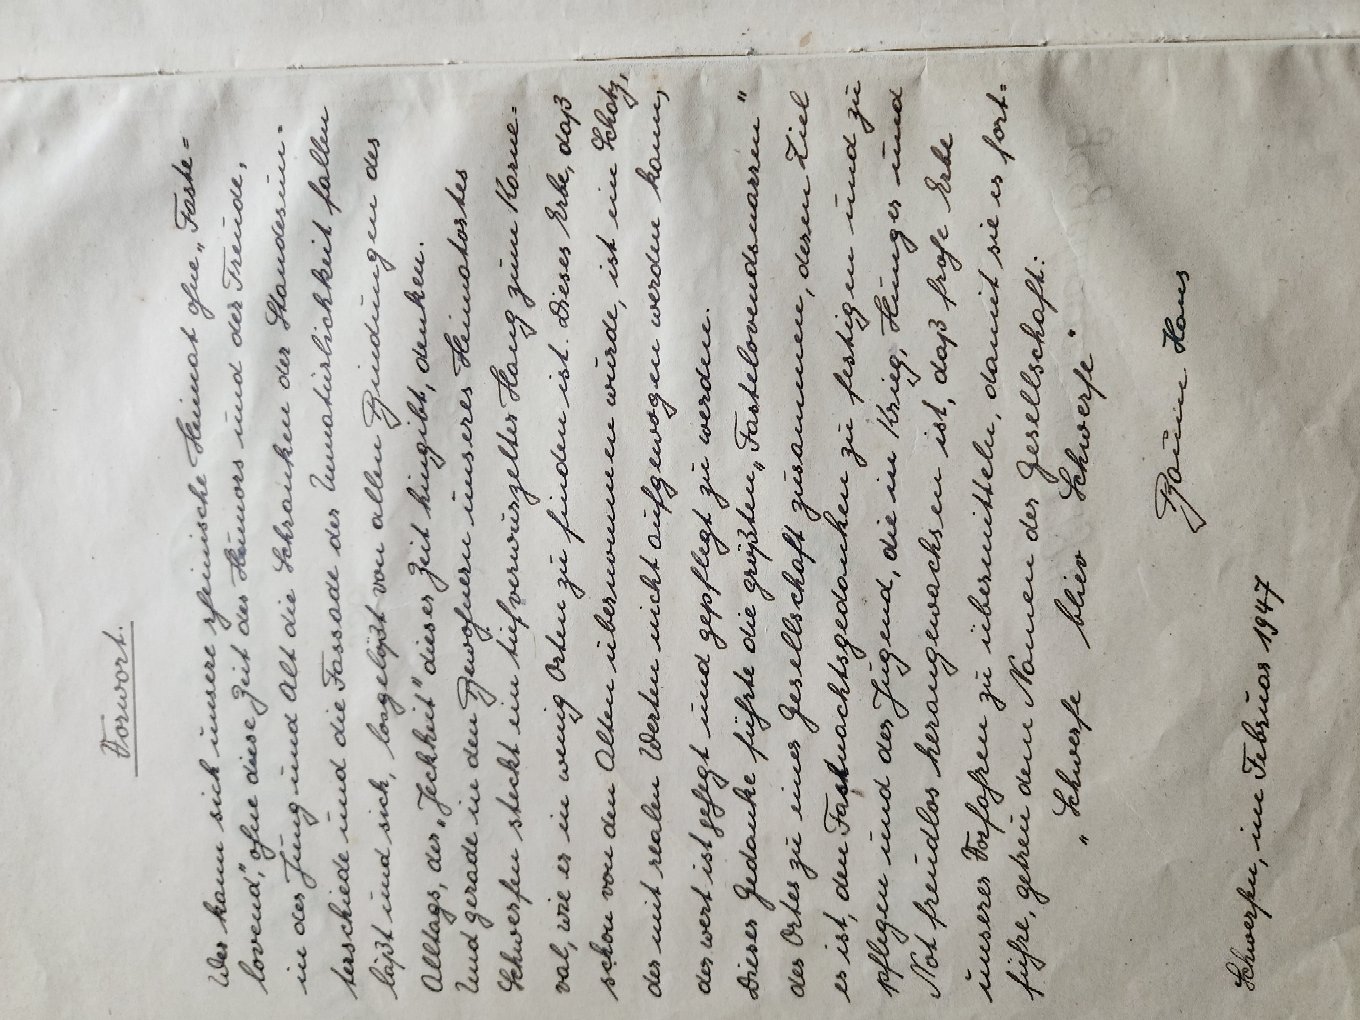 Vorwort.
Wer kann sich unsere rheinische Heimat ohne „Faste=
lovend", ohne diese Zeit des Humors und der Freude,
in der Jung und Alt die Schranken der Standesun=
terschiede und die Fassade der Unnatürlichkeit fallen
läßt und sich, losgelößt von allen Bindungen des
Alltags, der „Jeckheit" dieser Zeit hingibt, denken.
Und gerade in den Bewohnern unseres Heimatortes
Schwerfen steckt ein tiefverwurzelter Hang zum Karne=
val, wie er in wenig Orten zu finden ist. Dieses Erbe, daß
schon von den Alten übernommen wurde, ist ein Schatz,
der mit realen Werten nicht aufgewogen werden kann,
der wert ist gehegt und gepflegt zu werden.
Dieser Gedanke führte die größten „Fastelovendsnarren"
des Ortes zu einer Gesellschaft zusammen, deren Ziel
es ist, den Fastnachtsgedanken zu festigen und zu
pflegen und der Jugend, die in Krieg, Hunger und
Not freudlos herangewachsen ist, daß frohe Erbe
unserer Vorfahren zu übermitteln, damit sie es fort=
führe, getreu dem Namen der Gesellschaft:
„Schwerfe bliev Schwerfe"
Hans
Schwerfen, im Februar 1947